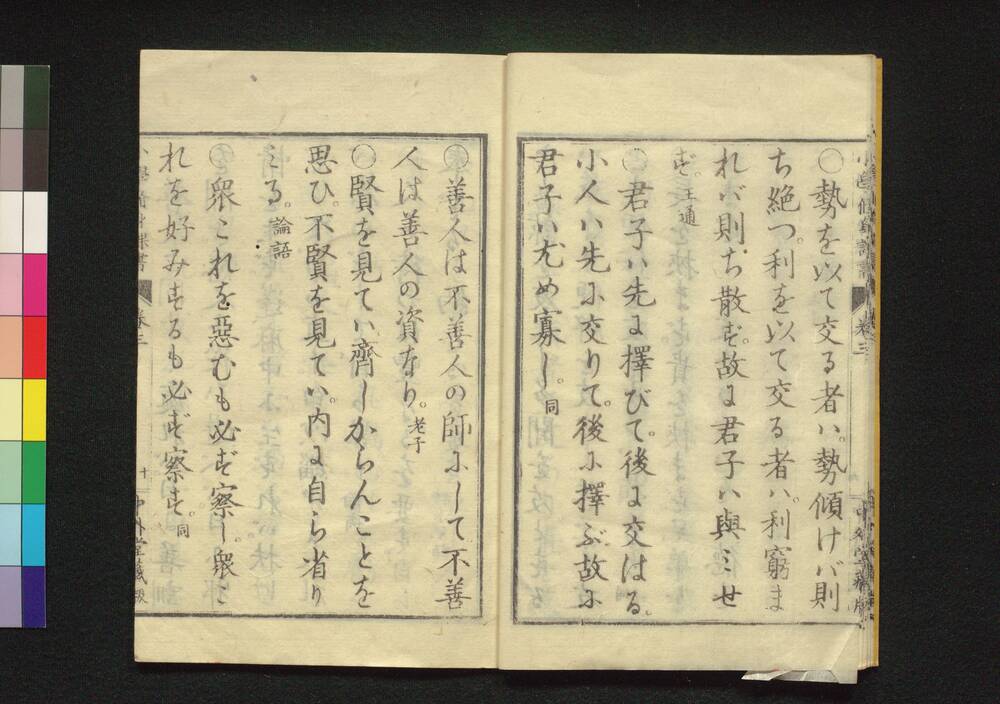 〇勢を以て交る者ハ。勢傾けバ則
ち絶つ。利を以て交る者ハ。利窮ま
れバ則ち散ず。故に君子ハ與ミせ
ず。王通
〇君子ハ先に擇びて。後に交はる。
小人ハ先に交りて。後に擇ぶ。故に
君子ハ尤め寡し。同
〇善人は不善人の師にして不善
人は善人の資なり。老子
〇賢を見てハ。齊しからんことを
思ひ。不賢を見てハ。内に自ら省り
ミる。論語
〇衆これを惡むも必ず察し。衆こ
れを好みするも必ず察す。同
卷三
十
中外堂藏版